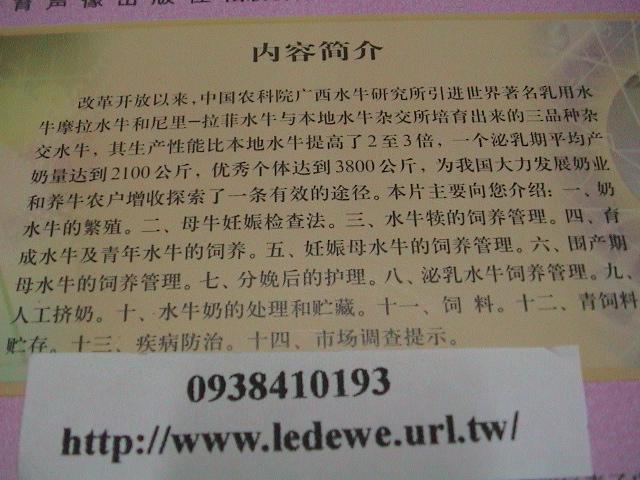 育声像出版社
内容简介
改革开放以来,中国农科院广西水牛研究所引进世界著名乳用水
牛摩拉水牛和尼里—拉菲水牛与本地水牛杂交所培育出来的三品种杂
交水牛，其生产性能比本地水牛提高了2至3倍，一个泌乳期平均产
奶量达到2100公斤，优秀个体达到3800公斤，为我国大力发展奶业
和养牛农户增收探索了一条有效的途径。本片主要向您介绍：一、奶
水牛的繁殖。二、母牛妊娠检查法。三、水牛犊的饲养管理。四、育
成水牛及青年水牛的饲养。五、妊娠母水牛的饲养管理。六、围产期
母水牛的饲养管理。七、分娩后的护理。八、泌乳水牛饲养管理。九、
人工挤奶。十、水牛奶的处理和贮藏。十一、饲 料。十二、青饲料
贮存。十三、疾病防治。十四、市场调查提示。
0938410193
http://www.ledewe.url.tw/